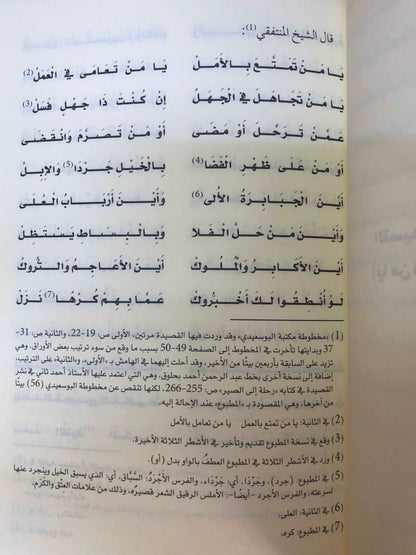 قال الشيخ المنتفقي (1):
يَا مَنْ تَمَتَّعَ بِالأَمَلْ يَا مَنْ تَعَامَى فِي العَمَلْ (2)
يَا مَنْ تَجَاهَلَ فِي الجَهَلْ إِنْ كُنْتَ ذَا جَهْلٍ فَسَلْ (3)
عَمَّنْ تَرَحَّلَ أَوْ مَضَى أَوْ مَنْ تَصَرَّمَ وَانْقَضَى
أَوْ مَنْ عَلَى ظَهْرِ الفَضَا (4) بِالخَيْلِ جَرْدًا (5) وَالإِبِلْ
أَيْنَ الجَبَابِرَةُ الأُلَى (6) وَأَيْنَ أَرْبَابُ العُلَى
وَأَيْنَ مَنْ حَلَّ الفَلَا وَبِالبِسَاطِ يَسْتَظِلْ
أَيْنَ الأَكَابِرُ وَالمُلُوكْ أَيْنَ الأَعَاجِمُ وَالتُّرُوكْ
لَوْ أُنْطِقُوا لَكَ أَخْبَرُوكْ عَمَّا بِهِمْ كُرْهًا (7) نَزَلْ
(1) «مخطوطة مكتبة البوسعيدي» وقد وردت فيها القصيدة مرتين، الأولى ص: 19-22، والثانية ص: 31-
37 وبدايتها تأخرت في المخطوط إلى الصفحة 49-50 بسبب ما وقع من سوء ترتيب بعض الأوراق. وهي
تزيد على السابقة بأربعين بيتًا من الأخير. وقد أحلت إليهما في الهامش بـ«الأولى»، «والثانية» على الترتيب،
إضافة إلى نسخة أخرى بخط عبد الرحمن أحمد بحلوق، وهي التي اعتمد عليها الأستاذ أحمد ثاني في نشر
القصيدة في كتابه «رحلة إلى السير»، ص: 255-266. لكنها تنقص عن مخطوطة البوسعيدي (56) بيتًا
من آخرها. وهي المقصودة بـ«المطبوع» عند الإحالة إليه.
(2) في الثانية: يا من تمتع بالعمل يا من تعامل بالأمل
(3) وقع في نسخة المطبوع تقديم وتأخير في الأشطر الثلاثة الأخيرة.
(4) ورد في الأشطر الثلاثة في المطبوع العطفُ بالواو بدل (أو).
(5) في المطبوع: (جرد)، وجَرْدًا، أي: جَرْدَاء، والفرس الأَجْرَدُ: السَّبَّاق. أي: الذي يسبق الخيل وينجرد عنها
لسرعته، والفرس الأجرد -أيضًا-: الأملس الرقيق الشعر قصيرُه، وذلك من علامات العتق والكَرَم.
(6) في الثانية: العلى.
(7) في المطبوع: كره.